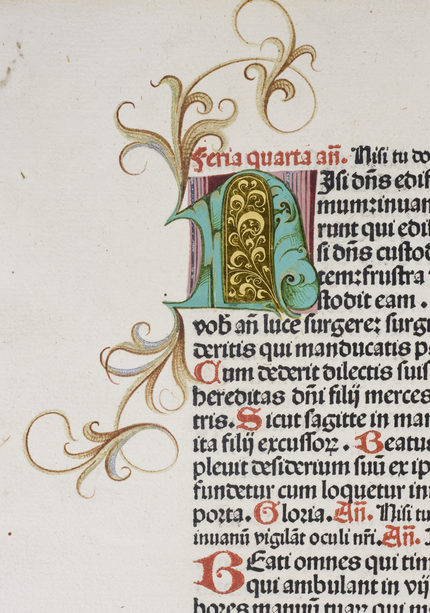 Feria quarta añ. Nisi tu do
NIsi dñs edif
mum:inuan
runt qui edi
si dñs custod
tem:frustra
stodit eam.
vob añ lucē surgere: surgi
deritis qui manducatis p
Cum dederit dilectis suis
hereditas dñi filij merces
tris. Sicut sagitte in man
ita filij excussoꝝ. Beatus
pleuit desiderium suū ex ip
fundetur cum loquetur in
porta. Gloria. Añ. Nisi tu
inuanū vigilāt oculi nr̄i. Añ.
BEati omnes qui tim
qui ambulant in vij
bores manuū tuaꝝ qui m